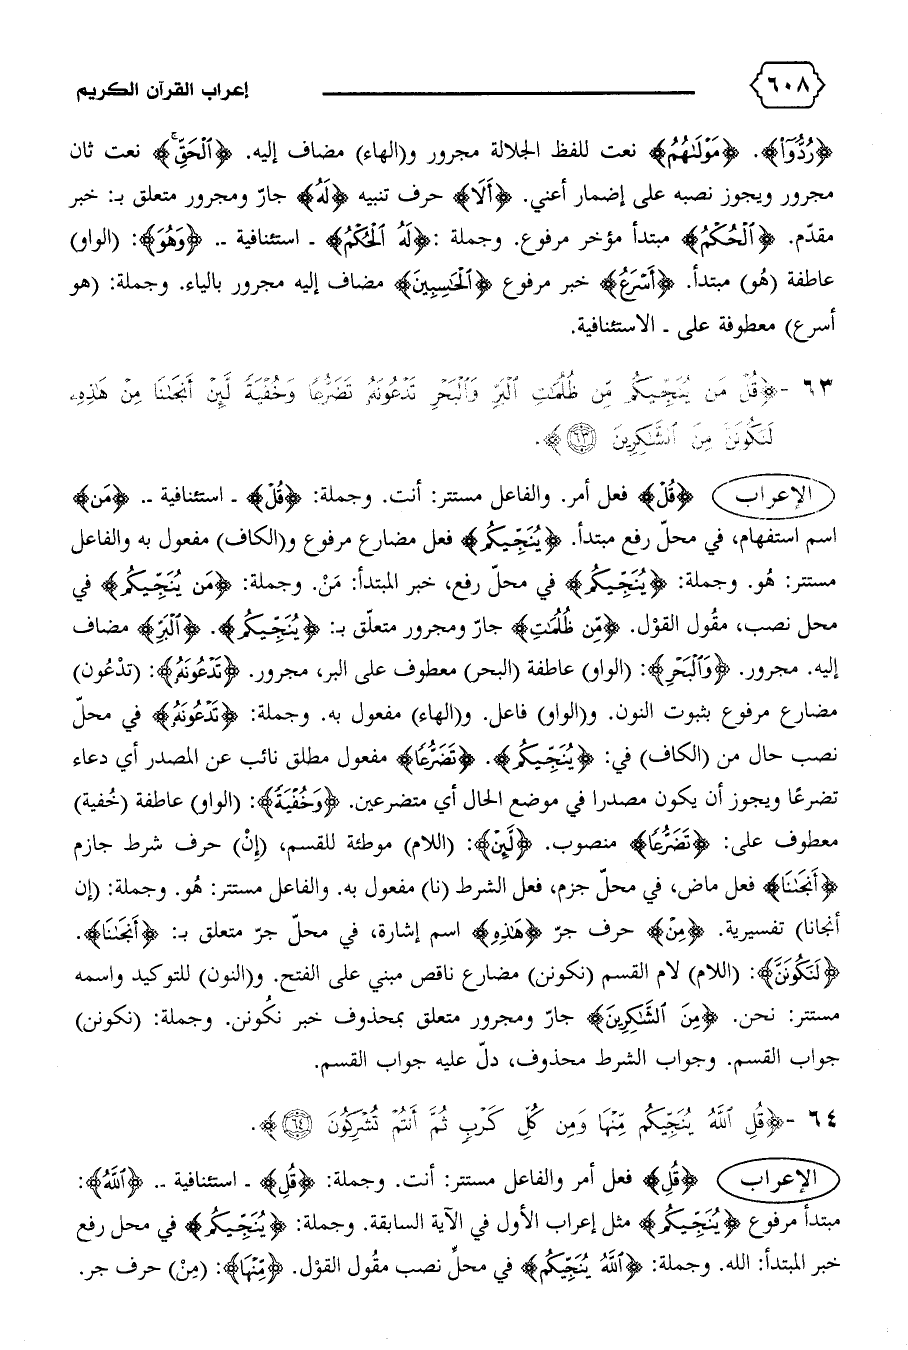 ٦٠٨ إعراب القرآن الكريم
﴿رُدُّوٓا۟﴾. ﴿مَوْلَىٰهُمُ﴾ نعت للفظ الجلالة مجرور و(الهاء) مضاف إليه. ﴿ٱلْحَقِّ ۚ﴾ نعت ثان
مجرور ويجوز نصبه على إضمار أعني. ﴿أَلَا﴾ حرف تنبيه ﴿لَهُ﴾ جارّ ومجرور متعلق بـ: خبر
مقدّم. ﴿ٱلْحُكْمُ﴾ مبتدأ مؤخر مرفوع. وجملة :﴿لَهُ ٱلْحُكْمُ﴾ ـ استئنافية ـ. ﴿وَهُوَ﴾: (الواو)
عاطفة (هُو) مبتدأ. ﴿أَسْرَعُ﴾ خبر مرفوع ﴿ٱلْحَٰسِبِينَ﴾ مضاف إليه مجرور بالياء. وجملة: (هو
أسرع) معطوفة على ـ الاستئنافية.
٦٣ -﴿قُلْ مَن يُنَجِّيكُم مِّن ظُلُمَٰتِ ٱلْبَرِّ وَٱلْبَحْرِ تَدْعُونَهُۥ تَضَرُّعًا وَخُفْيَةً لَّئِنْ أَنجَىٰنَا مِنْ هَٰذِهِۦ
لَنَكُونَنَّ مِنَ ٱلشَّٰكِرِينَ ٦٣﴾.
الإعراب ﴿قُلْ﴾ فعل أمر. والفاعل مستتر: أنت. وجملة: ﴿قُلْ﴾ ـ استئنافية ـ. ﴿مَن﴾
اسم استفهام، في محلّ رفع مبتدأ. ﴿يُنَجِّيكُم﴾ فعل مضارع مرفوع و(الكاف) مفعول به والفاعل
مستتر: هُو. وجملة: ﴿يُنَجِّيكُم﴾ في محلّ رفع، خبر المبتدأ: مَنْ. وجملة: ﴿مَن يُنَجِّيكُم﴾ في
محل نصب، مقُول القوْل. ﴿مِّن ظُلُمَٰتِ﴾ جارّ ومجرور متعلّق بـ: ﴿يُنَجِّيكُم﴾. ﴿ٱلْبَرِّ﴾ مضاف
إليه. مجرور. ﴿وَٱلْبَحْرِ﴾: (الواو) عاطفة (البحر) معطوف على البر، مجرور. ﴿تَدْعُونَهُۥ﴾: (تدْعُون)
مضارع مرفوع بثبوت النون. و(الواو) فاعل. و(الهاء) مفعول به. وجملة: ﴿تَدْعُونَهُۥ﴾ في محلّ
نصب حال من (الكاف) في: ﴿يُنَجِّيكُم﴾. ﴿تَضَرُّعًا﴾ مفعول مطلق نائب عن المصدر أي دعاء
تضرعًا ويجوز أن يكون مصدرا في موضع الحال أي متضرعين. ﴿وَخُفْيَةً﴾: (الواو) عاطفة (خُفية)
معطوف على: ﴿تَضَرُّعًا﴾ منصوب. ﴿لَّئِنْ﴾: (اللام) موطئة للقسم، (إنْ) حرف شرط جازم
﴿أَنجَىٰنَا﴾ فعل ماض، في محلّ جزم، فعل الشرط (نا) مفعول به. والفاعل مستتر: هُو. وجملة: (إن
أنجانا) تفسيرية. ﴿مِنْ﴾ حرف جرّ ﴿هَٰذِهِۦ﴾ اسم إشارة، في محلّ جرّ متعلق بـ: ﴿أَنجَىٰنَا﴾.
﴿لَنَكُونَنَّ﴾: (اللام) لام القسم (نكونن) مضارع ناقص مبني على الفتح. و(النون) للتوكيد واسمه
مستتر: نحن. ﴿مِنَ ٱلشَّٰكِرِينَ﴾ جارّ ومجرور متعلق بمحذوف خبر نكُونن. وجملة: (نكونن)
جواب القسم. وجواب الشرط محذوف، دلّ عليه جواب القسم.
٦٤ -﴿قُلِ ٱللَّهُ يُنَجِّيكُم مِّنْهَا وَمِن كُلِّ كَرْبٍ ثُمَّ أَنتُمْ تُشْرِكُونَ ٦٤﴾.
الإعراب ﴿قُلِ﴾ فعل أمر والفاعل مستتر: أنت. وجملة: ﴿قُلِ﴾ ـ استئنافية ـ. ﴿ٱللَّهُ﴾:
مبتدأ مرفوع ﴿يُنَجِّيكُم﴾ مثل إعراب الأول في الآية السابقة. وجملة: ﴿يُنَجِّيكُم﴾ في محل رفع
خبر المبتدأ: الله. وجملة: ﴿ٱللَّهُ يُنَجِّيكُم﴾ في محلٍّ نصب مقُول القوْل. ﴿مِّنْهَا﴾: (مِنْ) حرف جر.